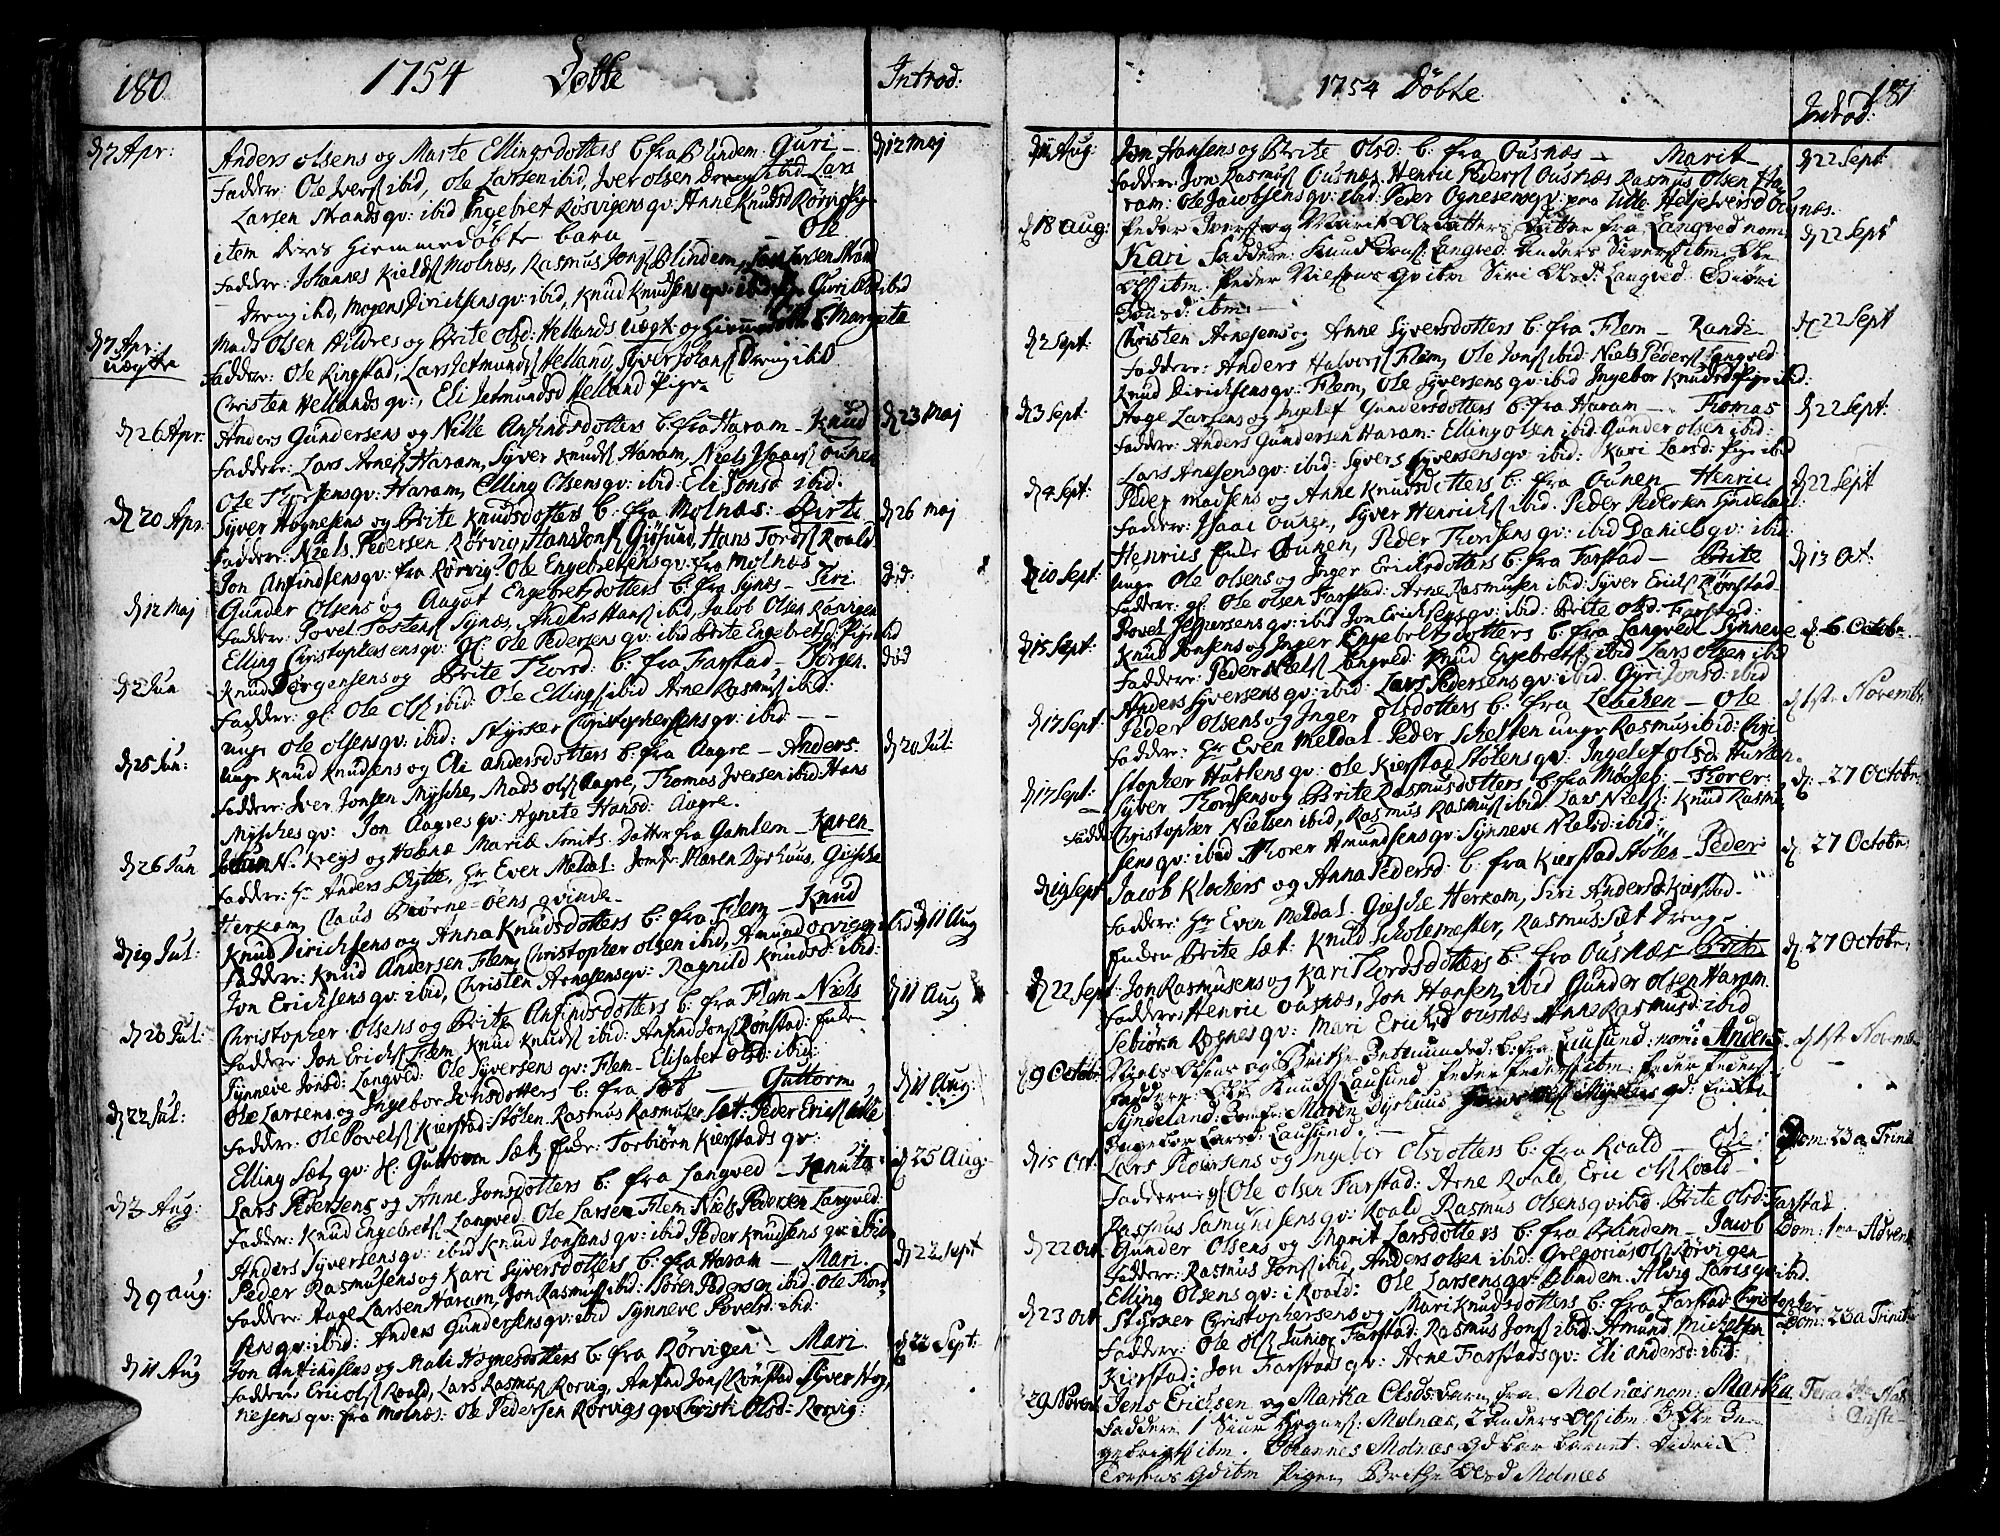 180
1754 Döbte
Introd:
d 7 Apr: Anders olsens og Marte Ellingsdotters b. fra Blindem: Guri – d 12 Maj
Faddere: Ole Iversſ ibid, Ole Larsen ibid, Iver olsen Dreng ibid Lars
Larsen Strands qv: ibid Engebret Rørvigens qv: Anne Knudsd Rørvig
item deres hiemmedøbte barn Ole
Faddere: Johannes Kieldsſ Molnæs, Rasmus Jonsſ Blindem, Larsen Strand
Dreng ibid, Mogens Dirichsens qv: ibid, Knud Knudsens qv: ibid Guri ibid
d 7 Apr: uægte Mads Olsen Hildres og Brite olsd: Hellands uægt: og hiemmedøbte b Margrete
Faddere: Ole Ringstad, Lars Jetmundsſ Helland, Syver Johansſ Dreng ibid
Christen Hellands qv:, Eli Jetmundsd Helland Pige
d 26 Apr: Anders Gundersens og Nille Anfindsdotters b: fra Haram – Knud d 23 Maj
Faddere: Lars Arnesſ Haram, Syver Knudsſ Haram, Niels Isaacsſ Ounen
Ole qv: Haram, Elling Olsens qv: ibid: Eli Jonsd ibid.
d 20 Apr. Syver Hognesens og Brite Knudsdotters b: fra Molnæs: Berte d 26 Maj
Faddere: Niels Pedersen Rørvig, Hans Jonsſ Giøsund, Hans Tordsſ Roald
Jon Anfindsens qv: fra Rørvig: Ole Engebretsens qv: fra Molnæs
d 12 Maj Gunder Olsens og Aagot Engebretsdotters b: fra Synes – Siri d:d:
Faddere: Povel Tostensſ Synæs, Anders Hansſ ibid, Jacob Olsen Rørvigen
Elling Christophersens qv: Ole Pedersens qv: ibid Brite Engebretsd: Pige ibid
d 2 Jun Knud Jørgensens og Brite Thorsd: b: fra Farstad – Jørgen død
Faddere: gl: Ole Olsſ ibid: Ole Ellingsſ ibid Arne Rasmusſ ibid:
unge Ole olsens qv: ibid: Styrker Christophersens qv: ibid –
d 25 Jun: unge Knud Knudsens og Eli andersdotters b: fra Aagre – Anders d 20 Jul:
Faddere: Iver Jonsen Myschе, Mads olsſ Aagre, Thomas Iversen ibid: Hans
Myschеs qv: Jon Aagres qv: Agnete Hansd: Aagre.
d 26 Jun Johan N. Kreys og Helene Marie Smits Datter fra Gamlem – Karen
Faddere: Hr Anders Dytte, Hr Even Meldal: Jomfr: Maren Dyrhuus, Giesche
Herkom, Claus Biørne-öens qvinde –
d 19 Jul: Knud Dirichsens og Anna Knudsdotters b: fra Flem – Knud d 11 Aug
Faddere: Knud Andersen Flem, Christopher olsen ibid, Amund
Jon Erichsens qv: ibid, Christen Arnesens qv: Ragnild Knudsd: ibid:
d 20 Jul: Christopher Olsens og Brite Anfindsdotters b: fra Flem – Niels d 11 Aug
Faddere: Jon Erichsſ Flem, Knud Knudsſ ibid: Anfind Jonsſ Rønstad: Enke
Synneve Jonsd: Langved: Ole Syversens qv: Flem – Elisabet olsd: ibid:
d 22 Jul: Ole Larsens og Ingebor Johsdotters b: fra Sæt – Guttorm d 11 Aug:
Faddere: Ole Povelsſ Kierstad: Stølen Rasmus Rasmusen Sæt: Peder Ericsſ
Elling Sæt qv: gl: Guttorm Sætz Enke: Torbiørn Kierstads qv:
d 3 Aug: Lars Pedersens og Anne Jonsdotters b: fra Langved – Knut d 25 Aug:
Faddere: Knud Engebretsſ Langved Ole Larsen Flem Niels Pedersen Langved:
Anders Syversens qv: ibid Knud Jonsens qv: ibid Peder Knudsens qv: ibid
d 9 Aug: Peder Rasmusens og Kari Syversdotters b: fra Haram – Mari. d 22 Sept
Faddere: Aage Larsen Haram, Jon Rasmusſ ibid: Sören Pedersen ibid: Ole Thor-
sens qv: ibid: Anders Gundersens qv: ibid Synneve Povelsd: ibid:
d 11 Aug Jon Anfindsens og Mali Hognesdotters b: fra Rørvigen – Mari d 22 Sept:
Faddere Eric olsſ Roald, Lars Rasmusſ Rørvig, Anfind Jonsſ Rønstad Syver Hog-
nesens qv: fra Molnæs: Ole Pedersen Rørvigs qv: Christi Olsd: Rørvig:
1754 Döbte
181
Introd:
d 11 Aug: Jon Hansens og Brite Olsd: b: fra Ousnæs – Marit – d 22 Sept:
Faddere: Jon Rasmusſ Ousnæs Henric Pedersſ Ousnæs Rasmus Olsen Ha-
ram: Ole Jacobsens qv: ibid: Peder Ognesens qv: paa Ulle Ousnæs.
d 18 Aug: Peder Iversſ og Marit Olsdatters Datter fra Langved nom: d 22 Sept
Kari Faddere: Knud Langved Anders Siversſ ibm Ole
Olsſ ibm: Peder Nielsens qv ibm Siri Olsd: Langved Giuøri
Jonsd: ibm:
d 2 Sept: Christen Arnesens og Anne Syversdotters b: fra Flem – Randi d 22 Sept
Faddere: Anders Halvorsſ Flem, Ole Jonsſ ibid: Niels Pedersſ Langved:
Knud Dirichsens qv: Flem, Ole Syversens qv: ibid Ingebor Knudsd Pige ibid:
d 3 Sept: Aage Larsens og Ingelef Gundersdotters b: fra Haram – Thomas d 22 Sept:
Faddere: Anders Gundersen Haram: Elling olsen ibid: Gunder olsen ibid:
Lars Anesens qv: ibid: Syvers Syversens qv: ibid: Kari Larsd: Pige ibid
d 4 Sept: Peder Madsens og Anne Knudsdotters b: fra Ounen – Henric d 22 Sept
Faddere: Isaac Ounen, Syver Henrichsſ ibid: Peder Pedersen Syndeland
Henrics Enke Ounen, Peder Thorsens qv: ibid Daniels qv: ibid:
d 10 Sept unge Ole Olsens og Inger Ericksdotters b: fra Farstad – Brite d 13 Oct:
Faddere: gl: Ole olsen Farstad: Arne Rasmusen ibid: Syver Ericsſ Rønstad
Povel Jespersens qv: ibid Jon Erichsens qv: ibid: Brite olsd: Farstad:
d 15 Sept: Knud Jonsens og Inger Engebretsdotters b: fra Langved Synneve d 6 Octobr.
Faddere: Peder Nielsſ Langved: Knud Engebretsſ ibid Lars olsen ibid
Anders Syversens qv: ibid: Lars Pedersens qv: ibid: Gyri Jonsd: ibid
d 17 Sept: Peder Olsens og Inger olsdotters b: fra Leachen – Ole d 1st Novembr
Faddere: Hr Even Meldal Peder Schelten unge Rasmus ibid: Chri-
stopher Hurlens qv: Ole Kierstad Stølens qv: Ingelef olsd: Hurlen.
d 17 Sept: Syver Thordsens og Brite Rasmusdotters b: fra Morseb: – Thorer: d. – 27 Octobr:
Fadd: Christopher Nielsen ibid, Rasmus Rasmusſ ibid Lars Nielsſ: Knud Rasmu-
sens qv: ibid Thorer Amundsens qv: Synneve Nielsd: ibid:
d 19 Sept Jacob Klochers og Anna Pedersd: b: fra Kierstad Stølen – Peder d: 27 Octobr:
Faddere: Hr Even Meldal. Giesche Herkom, Siri Andersd: Kierstad.
Enken Brite Sæt: Knud Scholemester, Rasmus Sæt Dreng
d 22 Sept: Jon Rasmusens og Kari Thordsdotters b: fra Ousnæs Brite d: 27 Octobr:
Faddere: Henric Ousnæs, Jon Hansen ibid Gunder olsen Haram.
Sebiørn Ognes qv: Mari Ericksd ousnæs Anne Rasmusd: ibid
d 9 Octobr: Niels Olsens og Brithe Petmundsd: b: fra Lausund: nom: Anders. d 1st Novembr
Faddere: Ole Knudsſ Lausund Peder Pedersſ ibm: Peder Pedersſ
Syndeland: Jomfr: Maren Dyrhuus Myschеs qd: Enken
Ingebor Larsd: Lausund. –
d 15 Oct: Lars Thorersens og Ingeber Olsdotters b: fra Roald – Eli Dom: 23 a Trinit
Fadderne gl Ole Olsen Farstad: Arne Roald, Eric olsſ Roald –
Rasmus Samundsens qv: Roald Rasmus Olsens qv ibid Brite olsd: Farstad
d 22 Oct Gunder Olsens og Ingrit Larsdotters b: fra Blindem – Jacob Dom: 1ma Advent
Faddere: Rasmus Jonsſ ibid, Anders olsen ibid: Gregorius olsſ Rørvigen –
Elling Olsens qv: i Roald: Ole Larsens qv: Blindem. Alvig Larsd ibid.
d 23 Oct Styrker Christophersens og Mari Knudsdotters b: fra Farstad: Christopher Dom: 23 a Trinit
Faddere: Ole Olsſ Junior Farstad: Rasmus Jonsſ ibid: Amund Michelsen
Kierstad: Jon Farstads qv: Arne Farstads qv: Eli andersd: ibid:
29 Novem: Jens Ericksen og Martha Olsds: Barn fra Molnæs nom: Martha Feria
Faddere 1 Siur Hognesſ: Molnæs, 2 Anders Olsſ ibm: 3 Ole En-
gebrigtsſ ibm. Johannes Molnæs qd bar barnet. Didrick
Torsens qd ibm Pigen Brithe Olsd Molnæs